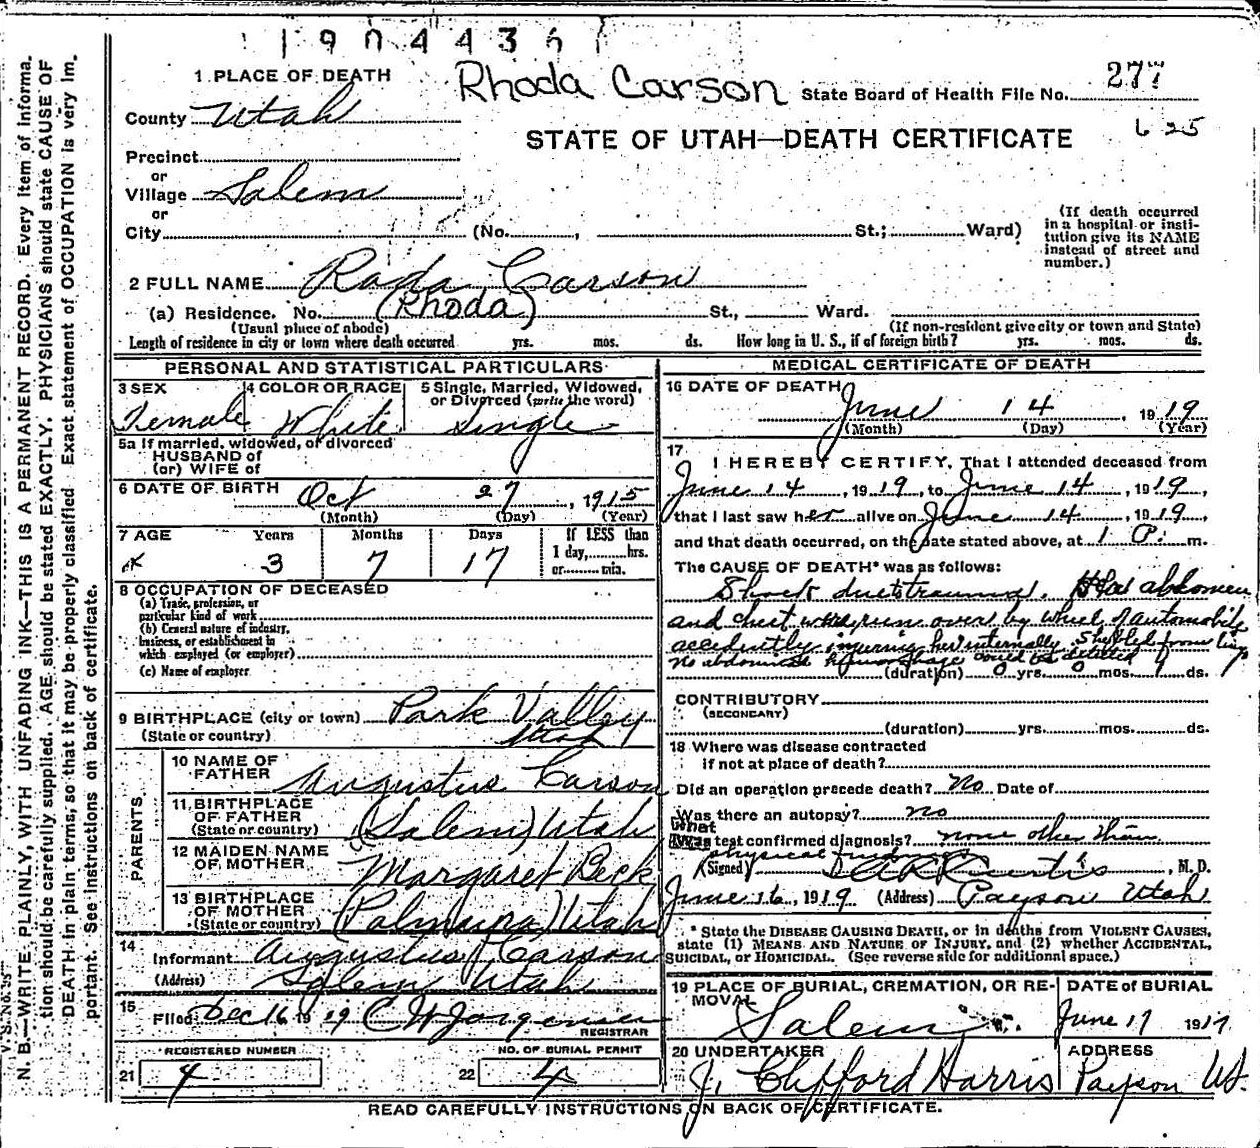 1904436
1 PLACE OF DEATH
Rhoda Carson State Board of Health File No. 277
County Utah
STATE OF UTAH—DEATH CERTIFICATE 625
Precinct
or
Village Salem
or
City (No. , St.; Ward)
(If death occurred
in a hospital or insti-
tution give its NAME
instead of street and
number.)
2 FULL NAME Rada Carson
(Rhoda)
(a) Residence. No. St., Ward.
(Usual place of abode) (If non-resident give city or town and State)
Length of residence in city or town where death occurred yrs. mos. ds. How long in U. S., if of foreign birth? yrs. mos. ds.
PERSONAL AND STATISTICAL PARTICULARS
3 SEX 4 COLOR OR RACE 5 Single, Married, Widowed,
or Divorced (write the word)
Female White Single
5a If married, widowed, or divorced
HUSBAND of
(or) WIFE of
6 DATE OF BIRTH Oct 27, 1915
(Month) (Day) (Year)
7 AGE Years Months Days If LESS than
1 day, hrs.
or min.
3 7 17
8 OCCUPATION OF DECEASED
(a) Trade, profession, or
particular kind of work
(b) General nature of industry,
business, or establishment in
which employed (or employer)
(c) Name of employer
9 BIRTHPLACE (city or town) Park Valley
(State or country) Utah
PARENTS
10 NAME OF
FATHER Augustus Carson
11 BIRTHPLACE
OF FATHER
(State or country) (Salem) Utah
12 MAIDEN NAME
OF MOTHER Margaret Beck
13 BIRTHPLACE
OF MOTHER
(State or country) (Palmyra) Utah
14
Informant Augustus Carson
(Address) Salem Utah
15
Filed Dec 16 1919 C W Jorgensen
REGISTRAR
REGISTERED NUMBER NO. OF BURIAL PERMIT
21 4 22 4
MEDICAL CERTIFICATE OF DEATH
16 DATE OF DEATH
June 14, 1919
(Month) (Day) (Year)
17
I HEREBY CERTIFY, That I attended deceased from
June 14, 1919, to June 14, 1919,
that I last saw her alive on June 14, 1919,
and that death occurred, on the date stated above, at 1 P. m.
The CAUSE OF DEATH* was as follows:
Shock due to trauma. Had abdomen
and chest was run over by wheel of automobile
accidently injuring her internally.
no abdominal could be
(duration) 0 yrs. 0 mos. ds.
CONTRIBUTORY
(SECONDARY)
(duration) yrs. mos. ds.
18 Where was disease contracted
if not at place of death?
Did an operation precede death? No Date of
Was there an autopsy? no
What test confirmed diagnosis? none other than
physical
(Signed) Curtis, M. D.
June 16, 1919 (Address) Payson Utah
* State the DISEASE CAUSING DEATH, or in deaths from VIOLENT CAUSES,
state (1) MEANS AND NATURE OF INJURY, and (2) whether ACCIDENTAL,
SUICIDAL, or HOMICIDAL. (See reverse side for additional space.)
19 PLACE OF BURIAL, CREMATION, OR RE-
MOVAL DATE of BURIAL
Salem June 17 1917
20 UNDERTAKER ADDRESS
J. Clifford Harris Payson Ut.
READ CAREFULLY INSTRUCTIONS ON BACK OF CERTIFICATE.
N. B.—WRITE PLAINLY, WITH UNFADING INK—THIS IS A PERMANENT RECORD. Every item of informa-
tion should be carefully supplied. AGE should be stated EXACTLY. PHYSICIANS should state CAUSE OF
DEATH in plain terms, so that it may be properly classified. Exact statement of OCCUPATION is very im-
portant. See instructions on back of certificate.